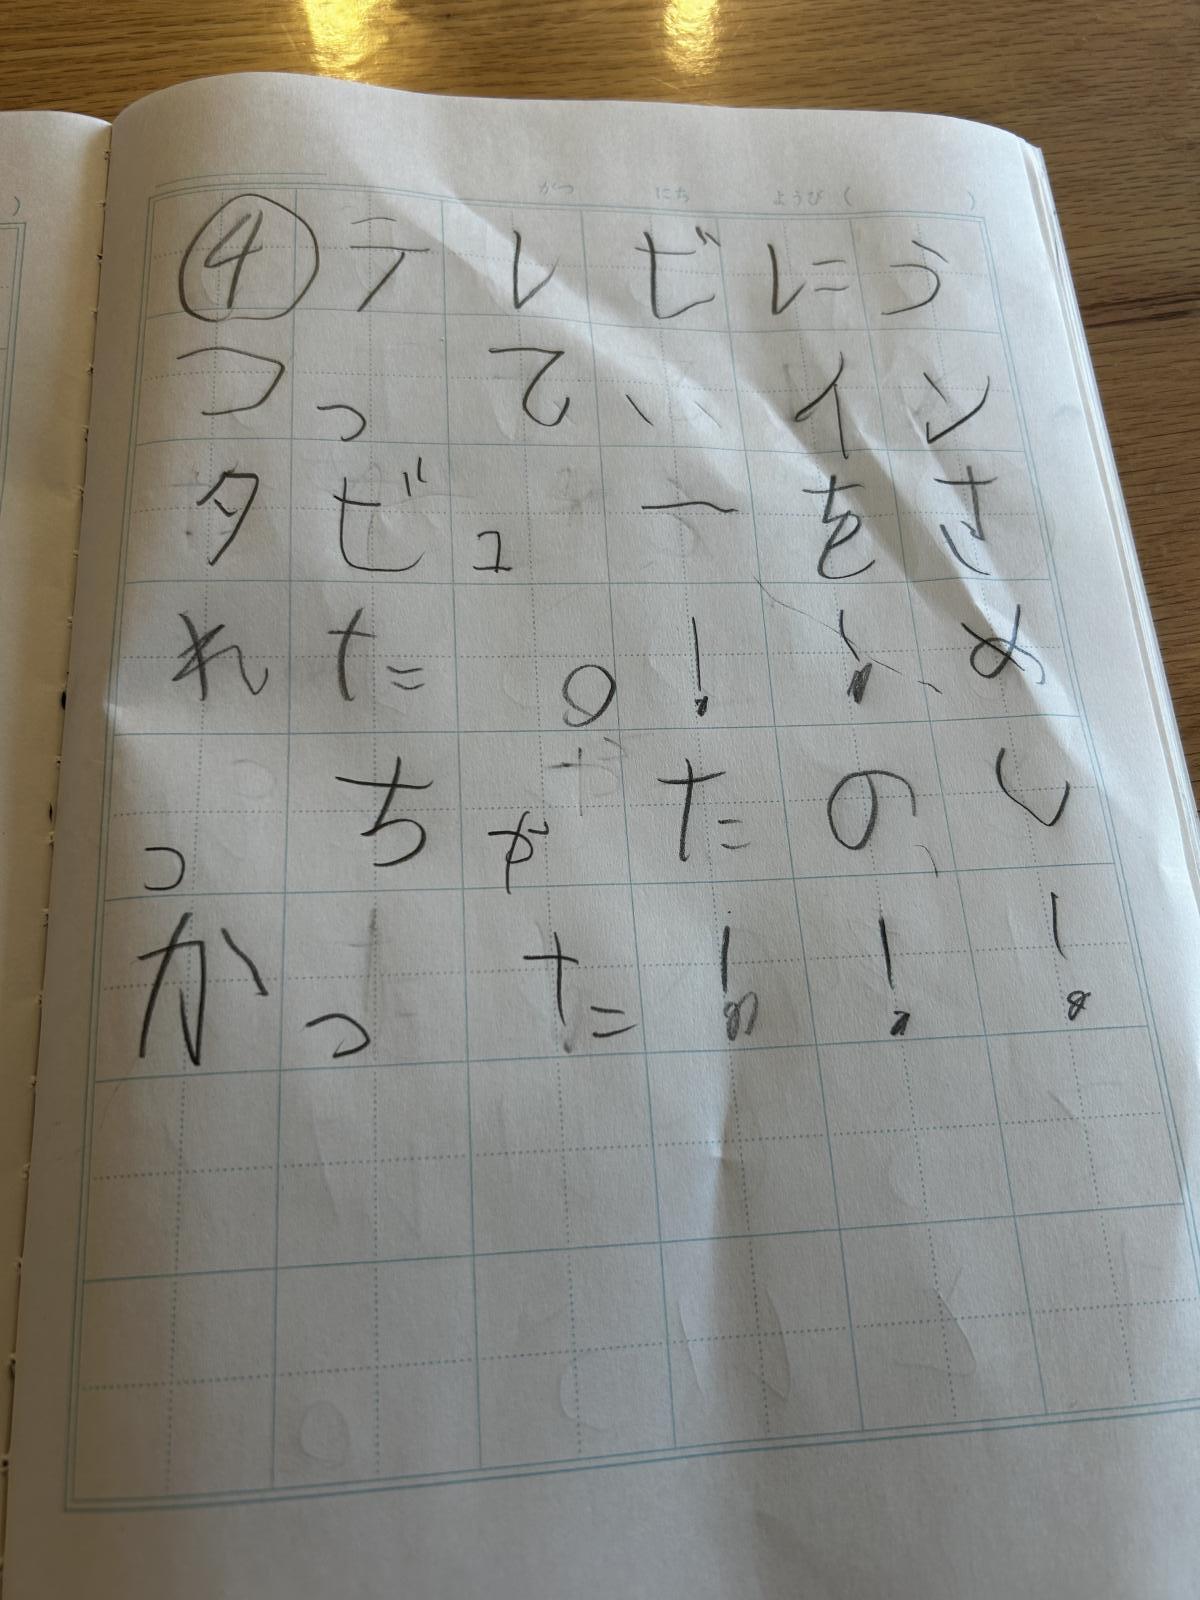 がつ　にち　ようび（　）
④テレビにう
つって、イン
タビューをさ
れた。！！め
っちゃたのし
かった！！！